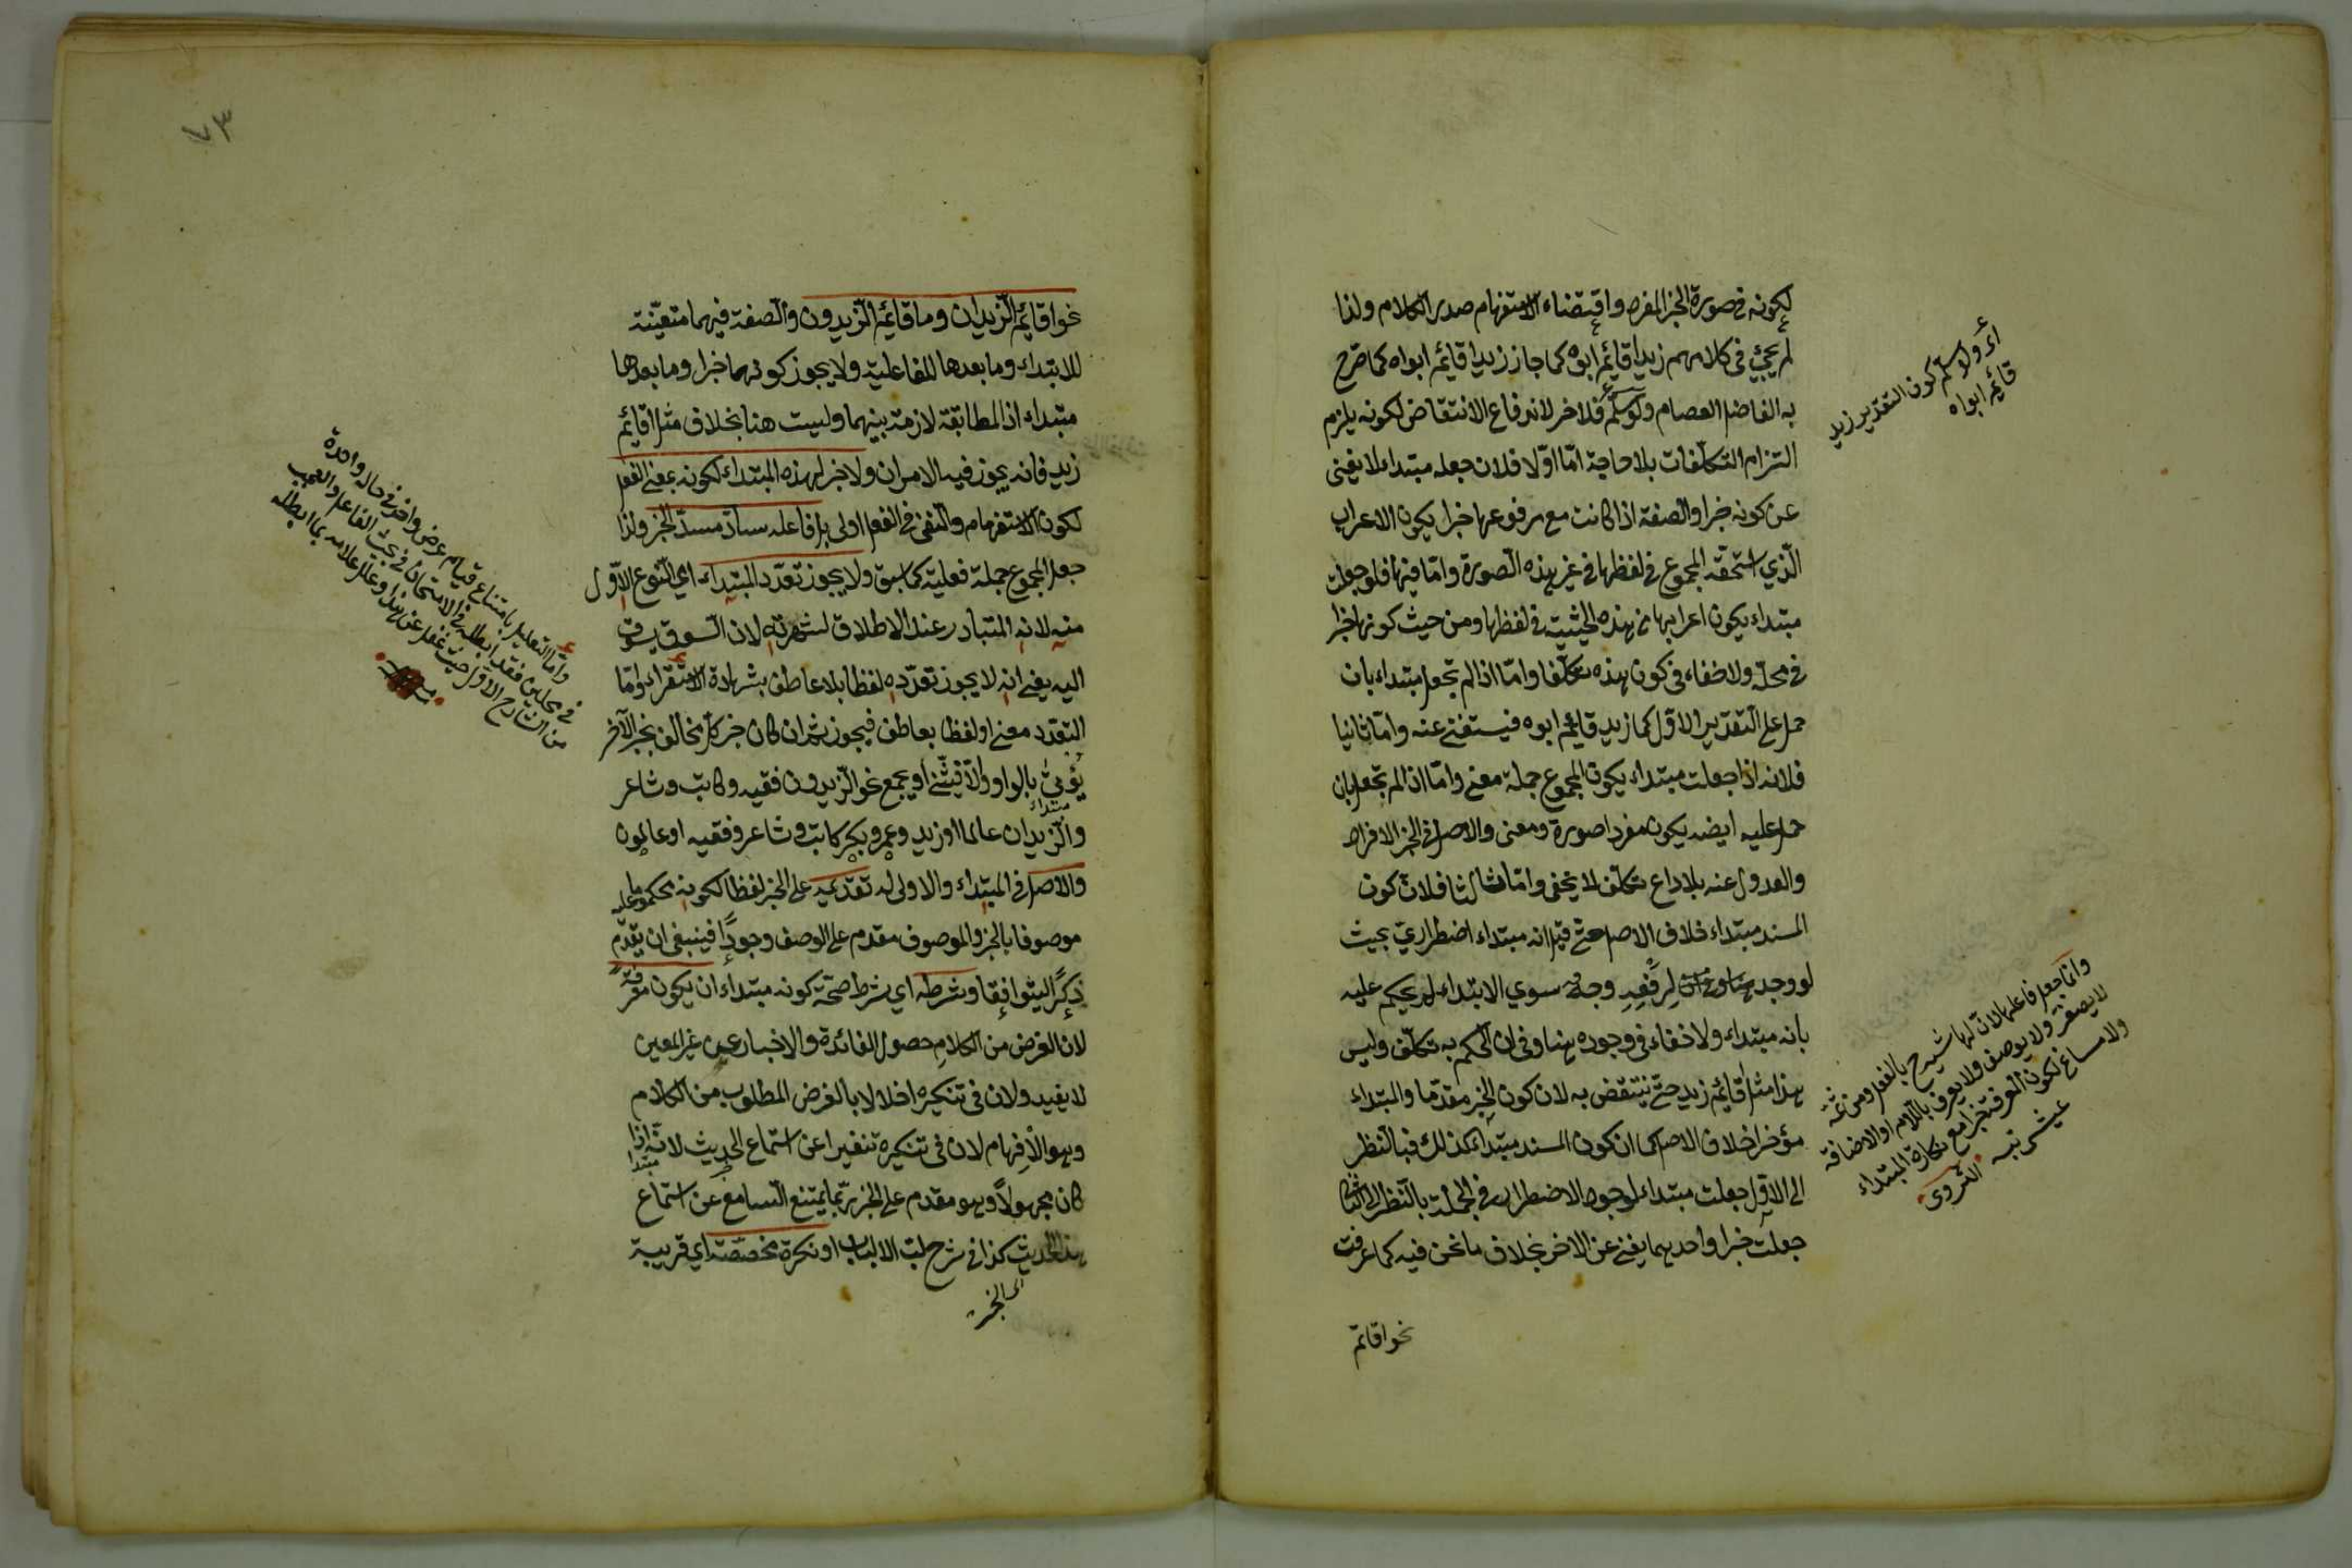 لكونه في صورة الخبر المفرد واقتضاء الاستفهام صدر الكلام ولذا
لم يجئ في كلامهم زيد اقائم ابوه كما جاز زيد اقائم ابواه كما صرح
به الفاضل العصام ولو سلم فلا خر لاندفاع الانتقاض لكونه يلزم
التزام التكلفات بلا حاجة امّا اوّلا فلان جعله مبتداء لا يغنى
عن كونه خبرا والصفة اذا كانت مع مرفوعها خبرا يكون الاعراب
الّذي استحقه المجموع في لفظها في غير هذه الصورة وامّا فيها فلو جعلت
مبتداء يكون اعرابها من هذه الحيثية في لفظها ومن حيث كونها خبرا
في محلّه ولا خفاء في كون هذه تكلّفا وامّا اذا لم تجعل مبتداء بان
حمل على التقدير الاوّل كما زيد قائم ابوه فيستغنى عنه وامّا ثانيا
فلانه اذا جعلت مبتداء يكون المجموع جملة معنى وامّا اذا لم تجعل بان
حمل عليه ايضه يكون مفردا صورة ومعنى والاصل في الخبر الافراد
والعدول عنه بلا داع تكلّف لا يخفى وامّا ثالثا فلانّ كون
المسند مبتداء خلاف الاصل حتّى قيل انه مبتداء اضطراريّ بحيث
لو وجد لرفعه وجه سوي الابتداء لم يحكم عليه
بانه مبتداء ولا خفاء في وجوده هنا وفي ان الحكم به تكلّف وليس
هذا مثل اقائم زيد حتّى ينتقض به لان كون الخبر مقدّما والمبتداء
مؤخرا خلاف الاصل كما ان كون المسند مبتداء كذلك فبالنظر
الى الاوّل جعلت مبتداء لوجود الاضطرار في الجملة بالنّظر الى الثاني
جعلت خبرا واحد بهما يغنى عن الاخر بخلاف ما نحن فيه كما عرفت
نحو اقائم
اى ولا سلم كون التقدير زيد
قائم ابواه
وانّما جعل فاعلها لانّ لها شبه بالفعل ومن ثمّه
لا يصغّر ولا يوصف ولا يعرف باللام او الاضافة
ولا مساغ لكون المعرفة خبرا مع نكارة المبتداء
٧٣
نحو اقائم الزيدان وما قائم الزيدون والصفة فيهما متعيّنة
للابتداء وما بعدها للفاعلية ولا يجوز كونهما خبرا وما بعدها
مبتداء اذ المطابقة لازمة بينهما وليست هنا بخلاف مثل اقائم
زيد فانه يجوز فيه الامران ولا خبر لهذه المبتداء لكونه بمعنى الفعل
لكون الاستفهام والنفى في الفعل اولى بل فاعله سادّ مسدّ الخبر ولذا
جعل المجموع جملة فعلية كما سبق ولا يجوز تعدّد المبتداء اي النّوع الاوّل
منه لانه المتبادر عند الاطلاق لشهرته لان السوق يسوق
اليه يعنى انه لا يجوز تعدّده لفظا بلا عاطف بشهادة الاستقراء وامّا
التعدّد معنى او لفظا بعاطف فيجوز ثم ان كان خبر كلّ مخالف بخبر الآخر
يؤتى بالواو والّا فيثنّى او يجمع نحو الزيدون فقيه وكاتب وشاعر
والزيدان عالما او زيد وعمرو بكر كاتب وشاعر وفقيه او عالمون
مبتداء
والاصل في المبتداء والاولى له تقديمه على الخبر لفظا لكونه محكوما عليه
موصوفا بالخبر والموصوف مقدم على الوصف وجودًا فينبغى ان يقدّم
ذكرًا ليتوافقا وشرطه اي شرط صحة كونه مبتداء ان يكون معرفة
لان الغرض من الكلام حصول الفائدة والاخبار عن غير المعين
لا يفيد ولان في تنكيره اخلالا بالغرض المطلوب من الكلام
وهو الافهام لان في تنكيره تنفيرا عن استماع الحديث لانّه اذا
مبتدا
كان مجهولًا وهو مقدم على الخبر ربّما يمتنع السامع عن استماع
هذا الحديث كذا في شرح لبّ الالباب او نكرة مخصّصة اي قريبة
اى الخبر
وامّا التعليل بامتناع قيام عرض واحد في حالة واحدة
في محلين فقد ابطله في الامتحان في بحث الفاعل والعجب
من الشارح الاوّل حيث غفل عن هذا وعلل علامه بما ابطله